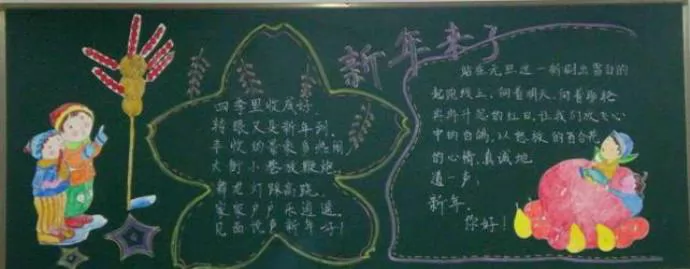 新年来了
四季里收成好,
转眼又是新年到,
丰收的喜悦多热闹,
大街小巷放鞭炮,
舞龙灯踩高跷,
家家户户乐逍遥,
见面说声新年好!
站在元旦这一崭新出富白的
起跑线上,向着明天,向着
冉冉升起的红日,让我们放飞心
中的白鸽,以怒放的百合花
的心情,真诚地
道一声:
新年,
你好!